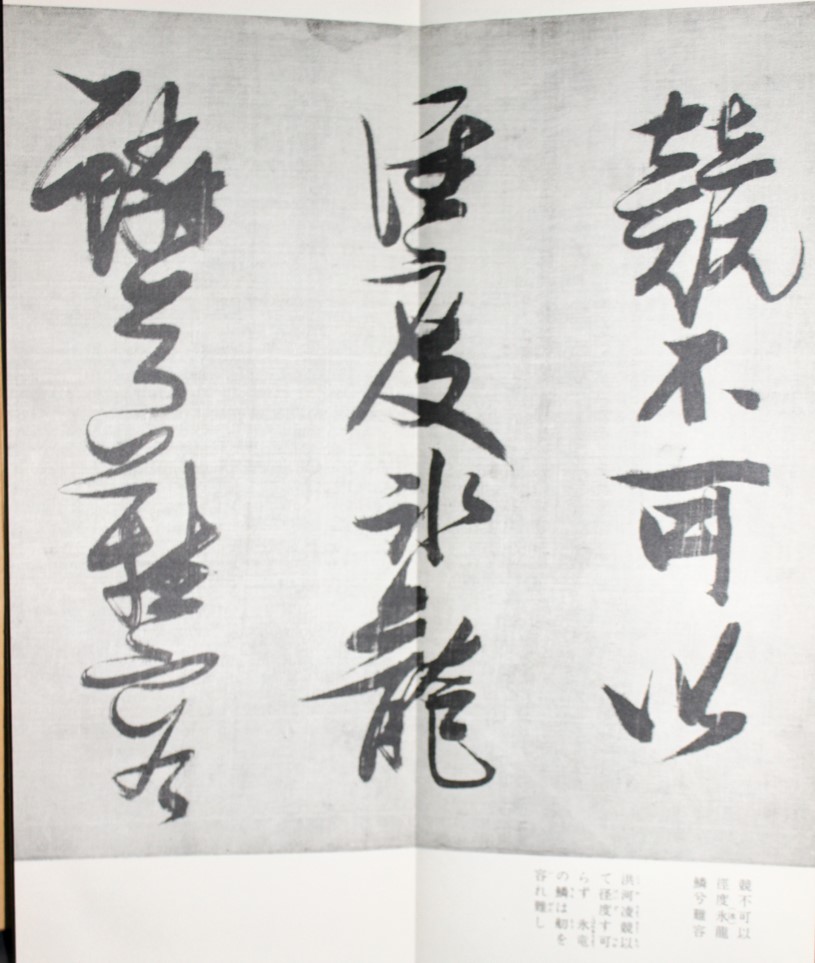 競不可以
徑度氷龍
鱗兮難容
競不可以
徑度氷龍
鱗兮難容
洪河凌競以
て径度す可
らず　氷竜
の鱗は舠を
容れ難し